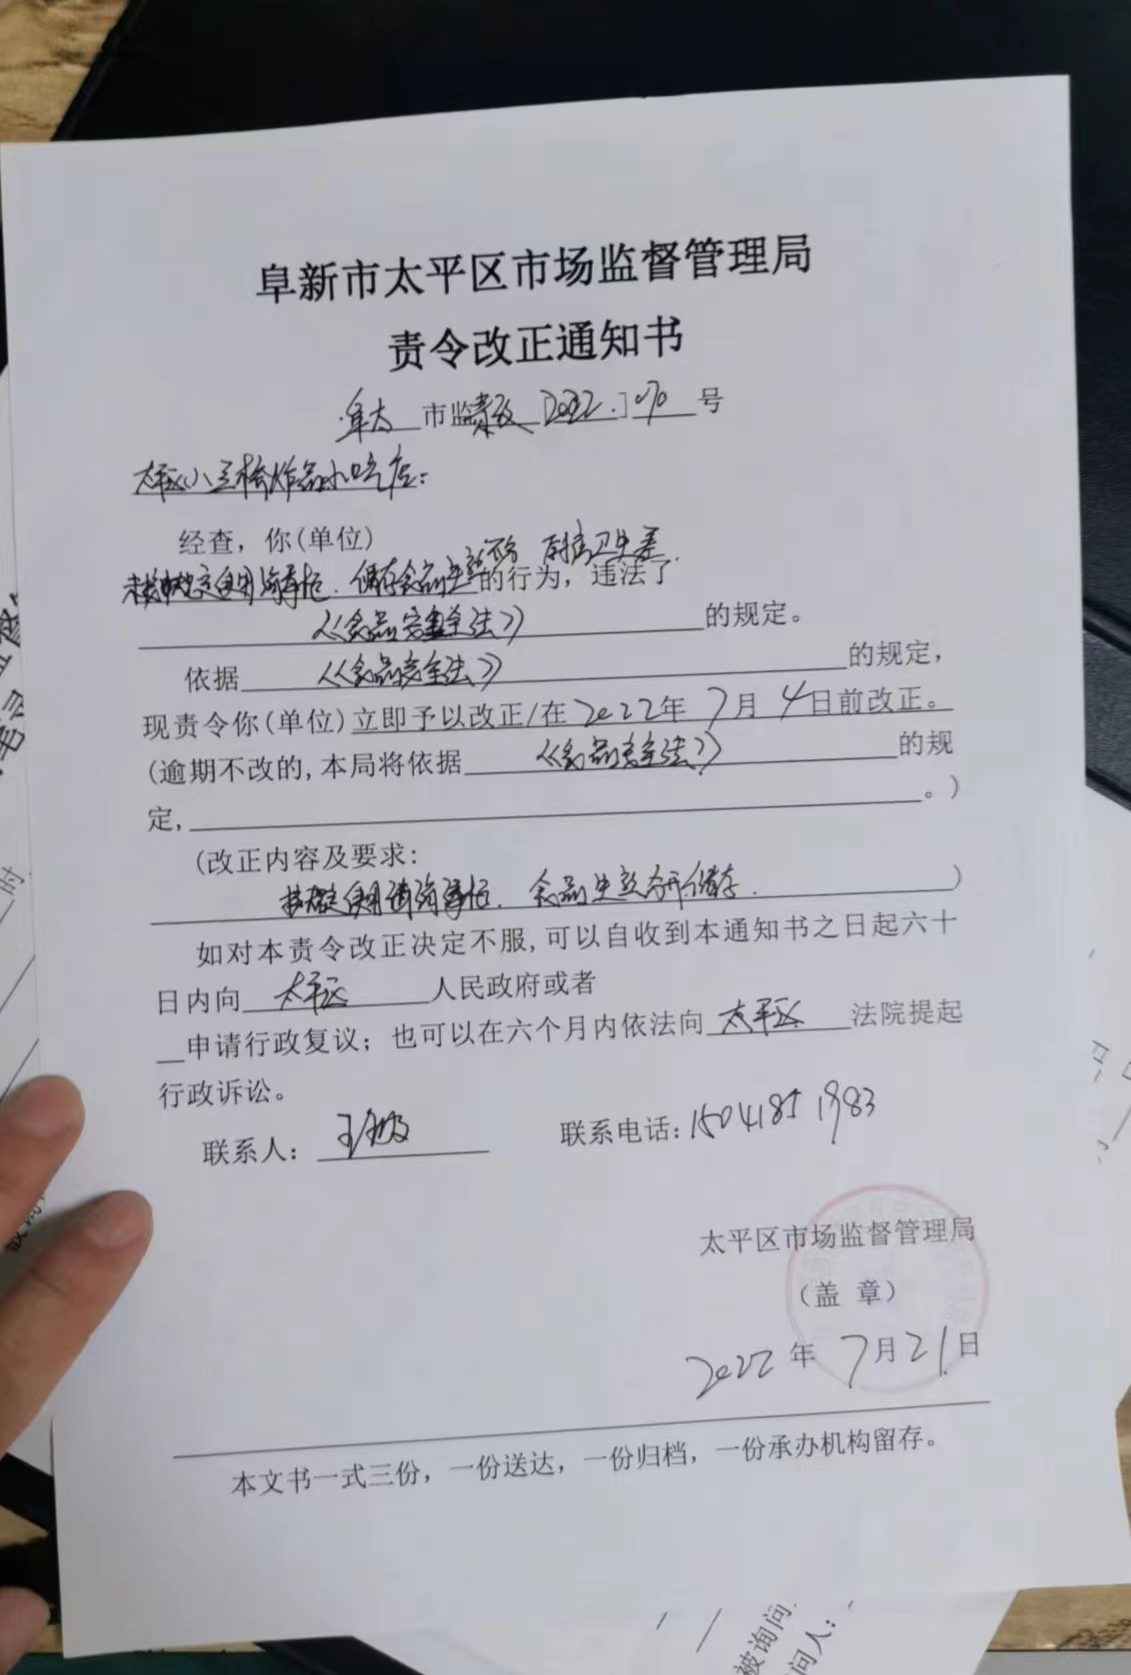 阜新市太平区市场监督管理局
责令改正通知书
阜太 市监责改 [2022.] 号
太平区小 炸 小吃店：
经查，你(单位)
生熟不分 厨房卫生差
未按规定使用消毒柜．储存食品生 的行为，违法了
《食品安全法》 的规定。
依据 《食品安全法》 的规定，
现责令你(单位)立即予以改正/在 2022年 7月 4日前改正。
(逾期不改的,本局将依据 《食品安全法》 的规
定, 。)
(改正内容及要求:
按规定使用 消毒柜．食品生熟分开储存． )
如对本责令改正决定不服,可以自收到本通知书之日起六十
日内向 太平区 人民政府或者
申请行政复议；也可以在六个月内依法向 太平区 法院提起
行政诉讼。
联系人： 王 联系电话:15041851983
太平区市场监督管理局
（盖 章）
2022 年 7月21日
本文书一式三份，一份送达，一份归档，一份承办机构留存。
被询问
问人：